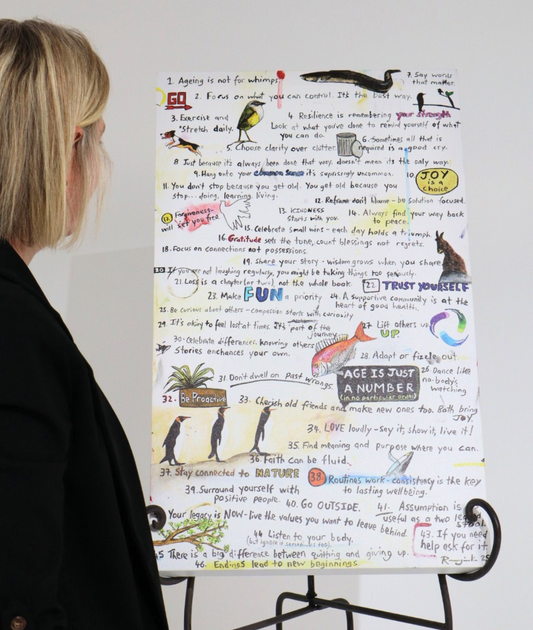 1. Ageing is not for whimps.
7. Say words
that matter.
GO
2. Focus on what you can control. It's the best way.
3. Exercise and
stretch daily.
4 Resilience is remembering your strength
Look at what you've done to remind yourself of what
you can do.
6. Sometimes all that is
required is a good cry.
Choose clarity over clutter.
8 Just because it's always been done that way, doesn't mean it's the only way.
9. Hang onto your common sense it's increasingly uncommon.
10
JOY
is a
choice
11. You don't stop because you get old. You get old because you
stop... doing, learning, living.
12. Reframe don't blame - be solution focused.
Forgiveness
will set you free
13. KINDNESS
Starts with you.
14. Always find your way back
to peace.
15. Celebrate small wins - each day holds a triumph.
16. Gratitude sets the tone, count blessings not regrets.
18. Focus on connections not possessions.
19. Share your story - wisdom grows when you share
20 If you are not laughing regularly, you might be taking things too seriously.
21. Loss is a chapter (or two), not the whole book.
22 TRUST YOURSELF
23. Make FUN a priority
24. A supportive community is at the
heart of good health.
25. Be curious about others - compassion starts with curiosity
29. It's okay to feel lost at times. It's part of the
journey
27 Lift others up
UP
30. Celebrate differences, knowing others
stories enchances your own.
28. Adapt or fizzle out.
31. Don't dwell on past wrongs.
AGE IS JUST
A NUMBER
(in no particular order)
26. Dance like
no-body's
watching
32. Be Proactive
33. Cherish old friends and make new ones too. Both bring
JOY
34. LOVE loudly - say it, show it, live it!
35. Find meaning and purpose where you can.
36. Faith can be fluid.
37. Stay connected to NATURE
38. Routines work - consistency is the key
to lasting wellbeing.
39. Surround yourself with
positive people.
40. GO OUTSIDE.
41. Assumption is
useful as a two legged
stool
Your legacy is NOW - live the values you want to leave behind.
43. If you need
help ask for it
44 Listen to your body.
45 There is a big difference between quitting and giving up.
46. Endings lead to new beginnings.